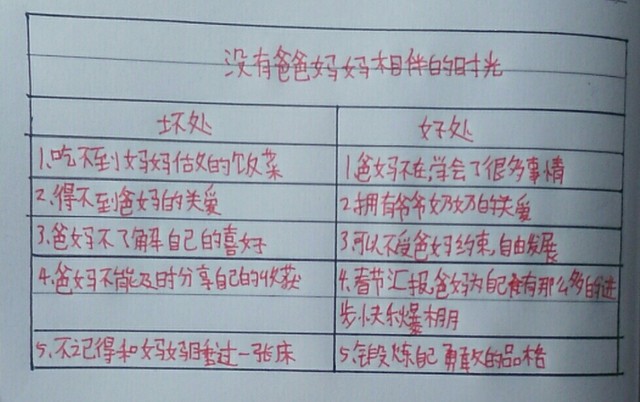 没有爸爸妈妈相伴的时光
坏处
好处
1.吃不到妈妈做的饭菜
1.爸妈不在学会了很多事情
2.得不到爸妈的关爱
2.拥有爷爷奶奶的关爱
3.爸妈不了解自己的喜好
3.可以不受爸妈约束,自由发展
4.爸妈不能及时分享自己的收获
4.春节汇报,爸妈为自己有那么多的进
步,快乐爆棚
5.不记得和妈妈睡过一张床
5.锻炼自己勇敢的品格